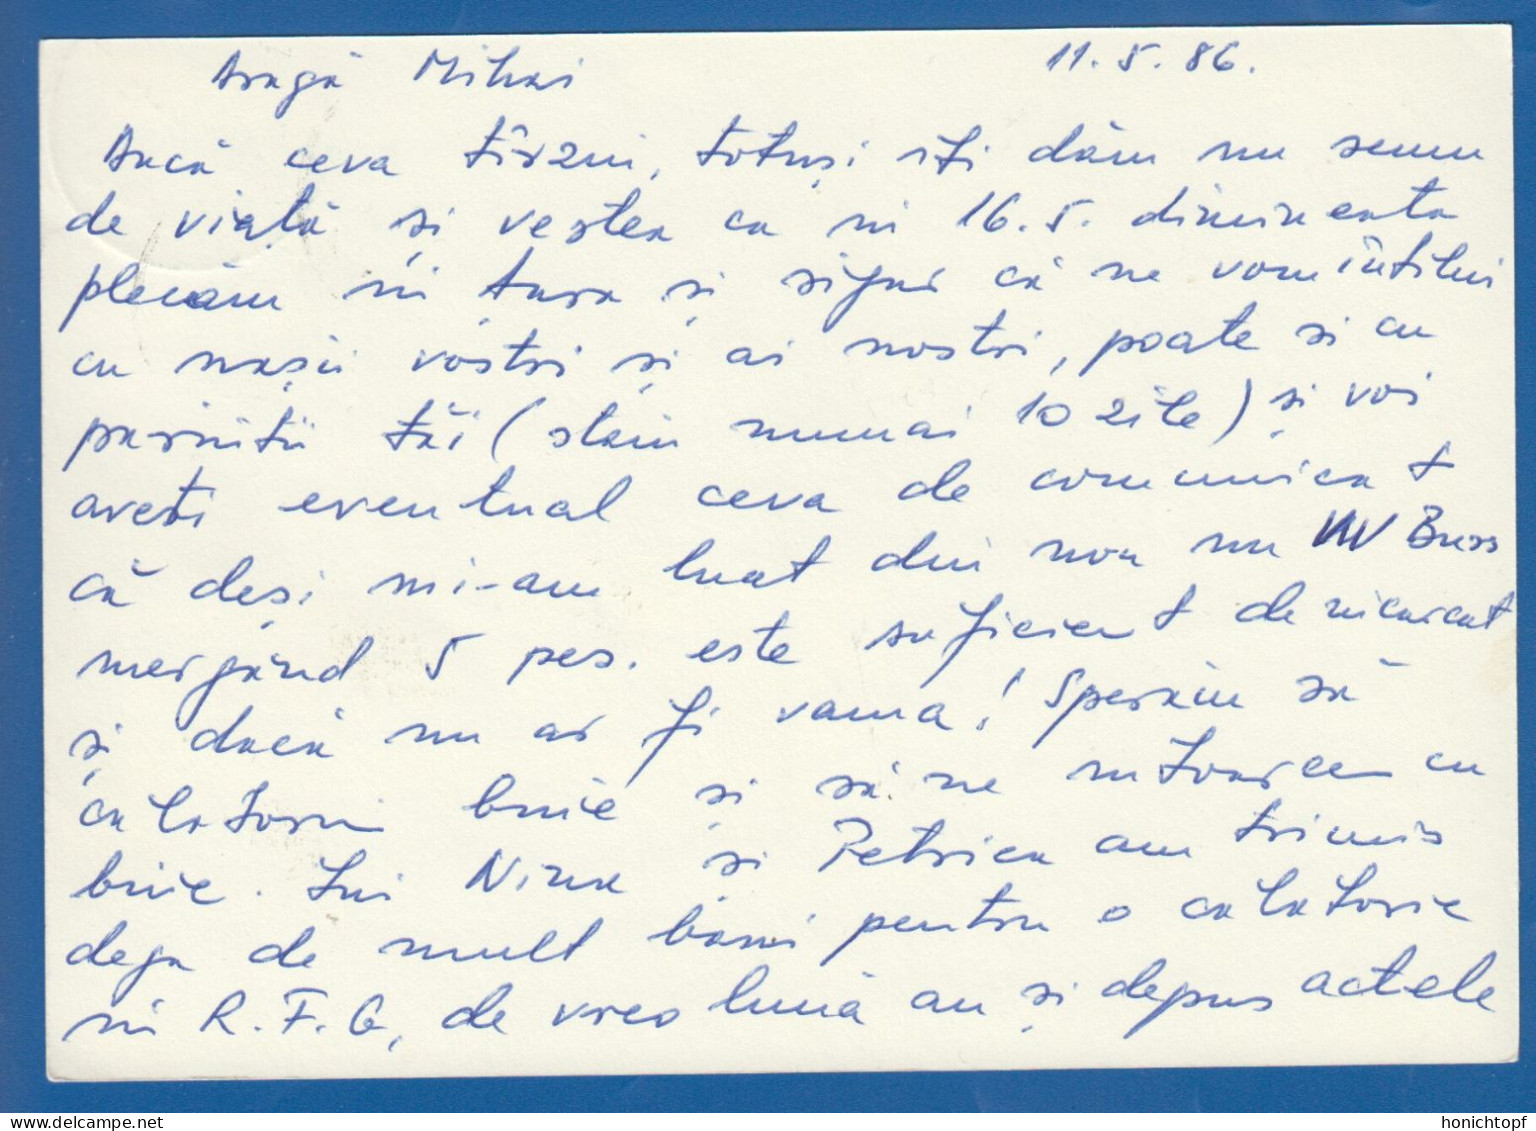 Dragă Mihai 11.5.86.
Dacă ceva tîrziu, totuși iți dăm un semn
de viață și vestea ca in 16.5. dimineata
plecăm in țara și sigur că ne vom întîlni
cu nașii voștri și ai nostri, poate si cu
parintii tăi (stăm numai 10 zile) și voi
aveti eventual ceva de comunicat
că deși mi-am luat din nou un VW Buss
mergând 5 pes. este suficient de incarcat
și dacă nu ar fi vama! Sperăm să
calatorim bine și să ne intoarcem cu
bine. Lui Nina și Petrica am trimis
deja de mult bani pentru o calatorie
in R.F.G, de vreo lună au și depus actele
honichtopf